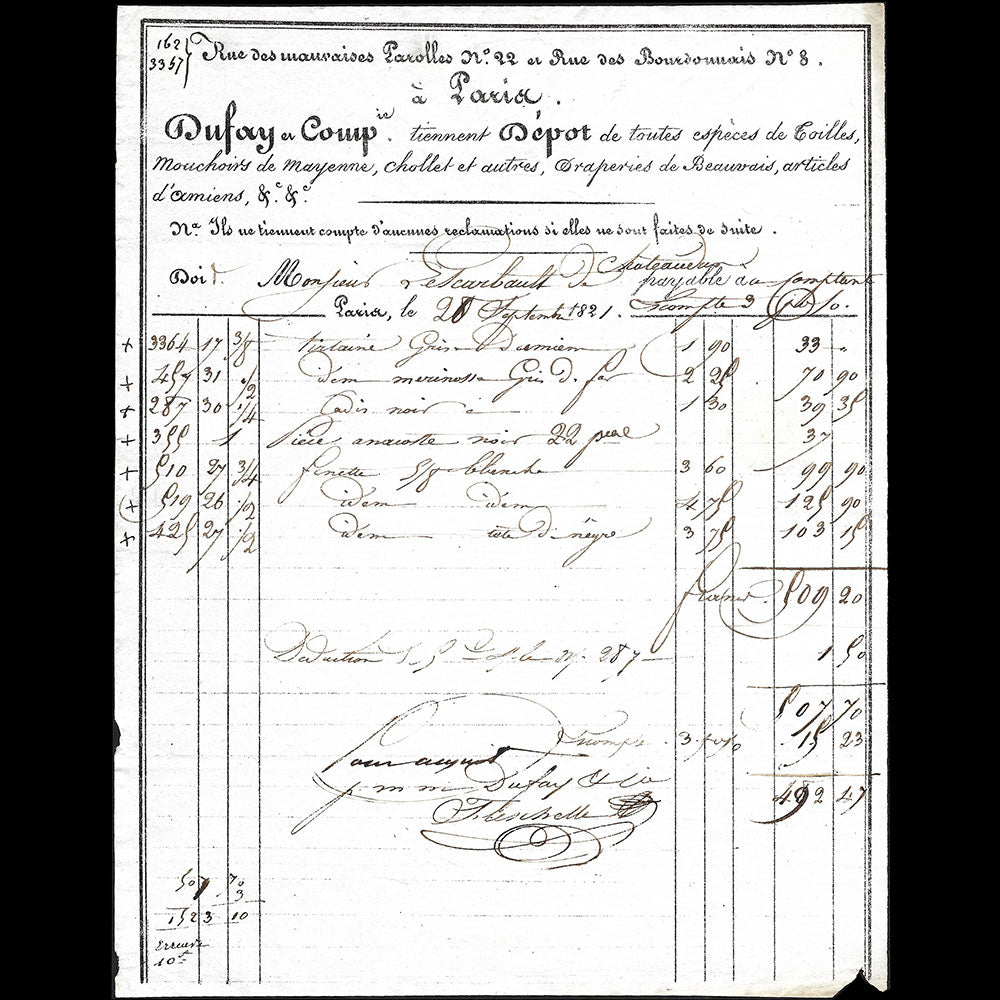 162
3357
Rue des mauvaises Parolles N.º 22 et Rue des Bourdonnais N.º 8.
à Paris.
Dufay et Comp.ie tiennent Dépot de toutes espèces de Toilles,
Mouchoirs de Mayenne, chollet et autres, Draperies de Beauvais, articles
d'amiens, &.c &.c
N.a Ils ne tiennent compte d'aucunes reclamations si elles ne sont faites de suite.
Doit Monsieur Lescarbault de Chateaudun payable au comptant
Paris, le 20 Septembre 1821. Escompte 3 p% .
+ 3364 17 3/8 tirtaine Gris d'amiens 1 90 33 "
+ 457 31 1/2 idem merinosse Gris d. fer 2 25 70 90
+ 287 30 1/4 Cadis noir 1 30 39 35
+ 355 1 Pièce anacoste noir 22 37
+ 510 27 3/4 finette 5/8 blanche 3 60 99 90
+ 519 26 1/2 idem idem 4 75 125 90
+ 425 27 1/2 idem tête d. nègre 3 75 103 15
francs. 509 20
Déduction 287 1 50
507 70
Escompte 3 p% 15 23
492 47
Pour acquit
p. m m Dufay & Cie
507 70
3
1523 10
Erreur
10